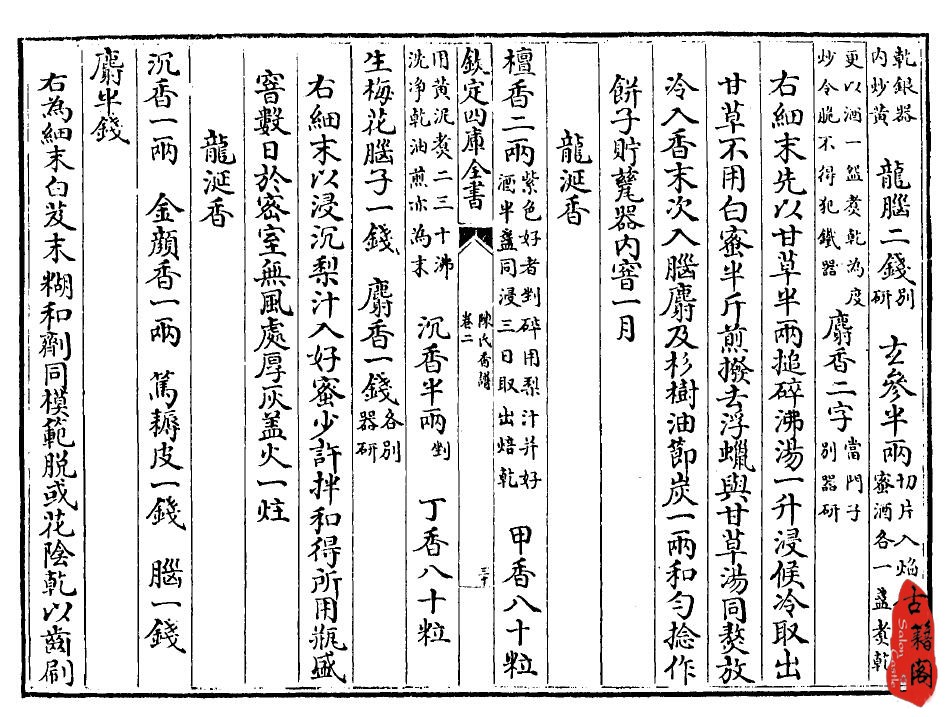 乾銀器内炒黄 龍腦二錢別研 玄參半兩切片入焰蜜酒各一盞煮乾
更以酒一盌煮乾為度炒令脆不得犯鐵器 麝香二字當門子別器研
右細末先以甘草半兩搥碎沸湯一升浸候冷取出
甘草不用白蜜半斤煎撥去浮蠟與甘草湯同熬放
冷入香末次入腦麝及杉樹油節炭一兩和勻捻作
餅子貯甆器内窨一月
龍涎香
檀香二兩紫色好者剉碎用梨汁并好酒半盞同浸三日取出焙乾 甲香八十粒
欽定四庫全書 陳氏香譜 卷二 三十
用黄泥煮二三十沸洗净乾油煎赤為末 沉香半兩剉 丁香八十粒
生梅花腦子一錢 麝香一錢各別器研
右細末以浸沉梨汁入好蜜少許拌和得所用瓶盛
窨數日於密室無風處厚灰盖火一炷
龍涎香
沉香一兩 金顔香一兩 篤耨皮一錢 腦一錢
麝半錢
右為細末白芨末糊和劑同模範脱或花陰乾以齒刷
古籍阁